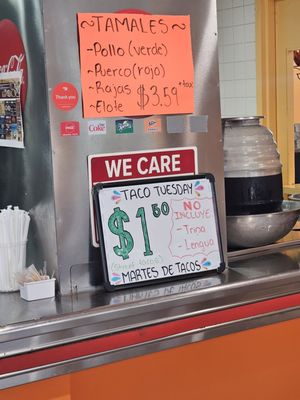 ~TAMALES~
-Pollo (verde)
-Puerco (rojo)
-Rajas
-Elote $3.59 +tax
THANK YOU
Coke
WE CARE
TACO TUESDAY
$1.50
(street tacos)
NO INCLUYE
-Tripa
-Lengua
MARTES DE TACOS